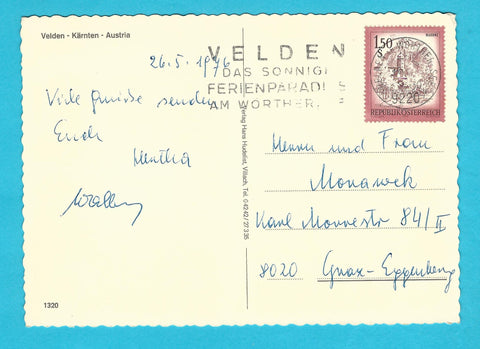 Velden - Kärnten - Austria
26.5.1976
VELDEN
DAS SONNIGE
FERIENPARADIES
AM WÖRTHER
1,50
S
REPUBLIK ÖSTERREICH
9220
Viele Grüsse senden
Euch
Hertha
Herrn und Frau
Karl Morrestr 84/II
8020 Graz-Eggenberg
Verlag Hans Hudelist, Villach, Tel. 04242/27335
1320